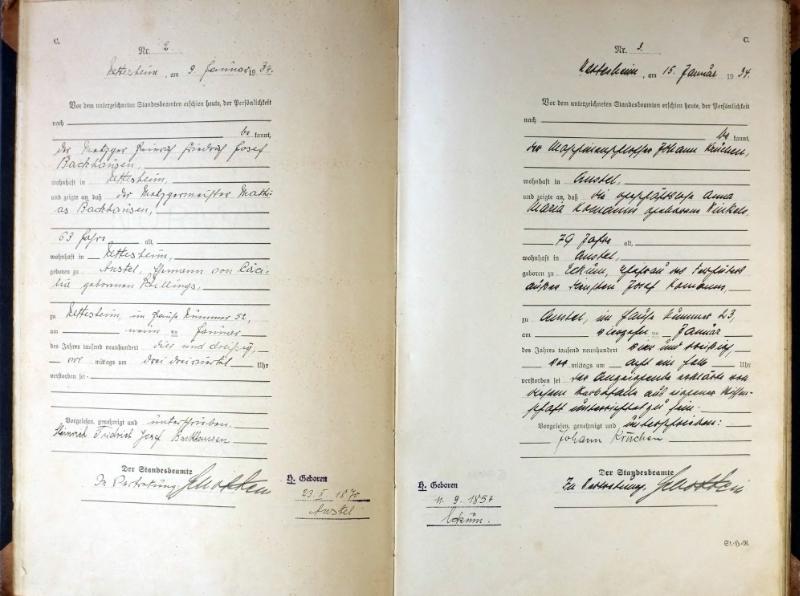 C.
Nr. 2
Nettesheim, am 9. Januar 1934.
Vor dem unterzeichneten Standesbeamten erschien heute, der Persönlichkeit
nach
be kannt,
der Metzger Heinrich Friedrich Josef
Backhausen,
wohnhaft in Nettesheim,
und zeigte an, daß der Metzgermeister Mathi-
as Backhausen,
63 Jahre alt,
wohnhaft in Nettesheim,
geboren zu Anstel, Ehemann von Cäci-
lia geborenen
zu Nettesheim, im Hause Nummer 52,
am neun ten Januar
des Jahres tausend neunhundert vier und dreißig,
vor mittags um drei dreiviertel Uhr
verstorben sei.
Vorgelesen, genehmigt und unterschrieben.
Heinrich Friedrich Josef Backhausen
Der Standesbeamte
In Vertretung:
H. Geboren
23. I. 1870
Anstel
C.
Nr. 3.
Nettesheim, am 15. Januar 1934.
Vor dem unterzeichneten Standesbeamten erschien heute, der Persönlichkeit
nach
be kannt,
der Maschinenschlosser Johann Krüchen,
wohnhaft in Anstel,
und zeigte an, daß die geschäftslose Anna
Maria Komanns geborene Winkels
79 Jahre alt,
wohnhaft in Anstel,
geboren zu Eckum, Ehefrau des
Josef Komanns,
zu Anstel, im Hause Nummer 23,
am vierzehn ten Januar
des Jahres tausend neunhundert vier und dreißig,
vor mittags um acht ein halb Uhr
verstorben sei. Der Anzeigende erklärte von
diesem Sterbefalle aus eigener Wissen-
schaft unterrichtet zu sein.
Vorgelesen, genehmigt und unterschrieben:
Johann Krüchen
Der Standesbeamte
In Vertretung:
H. Geboren
11. 9. 1854
Eckum.
St.-H.-R.